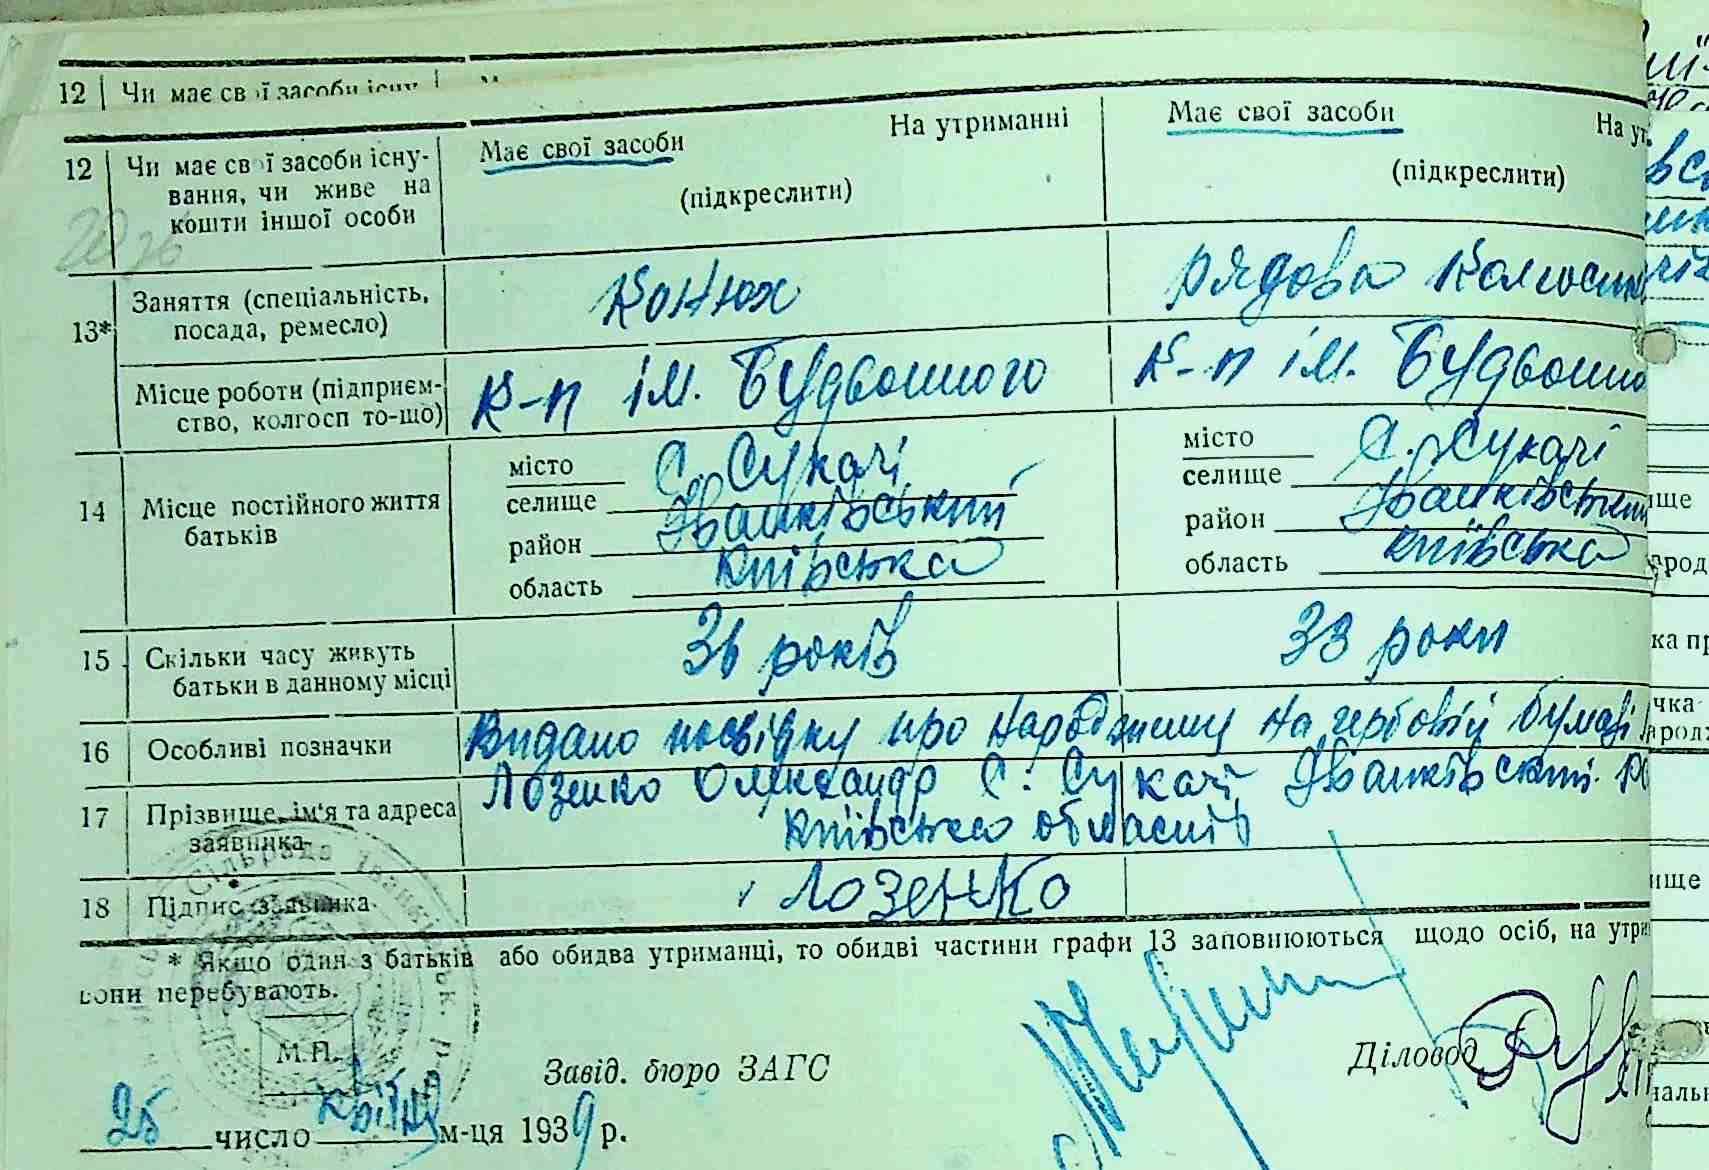 12 Чи має свої засоби існу-
12 Чи має свої засоби існу-
вання, чи живе на
кошти іншої особи
Має свої засоби На утриманні
(підкреслити)
Має свої засоби На ут
(підкреслити)
13* Заняття (спеціальність,
посада, ремесло)
Конюх
рядова колгосп
Місце роботи (підприєм-
ство, колгосп то-що)
К-п ім. Будьонного
К-п ім. Будьонно
14 Місце постійного життя
батьків
місто
селище С. Сукачі
район Іванківський
область Київська
місто
селище С. Сукачі
район Іванківський
область Київська
15 Скільки часу живуть
батьки в данному місці
36 років
33 роки
16 Особливі позначки
Видано посвідку про народження на гербовій бумазі
17 Прізвище, ім'я та адреса
заявника
Лозенко Олександр С. Сукачі Іванківский
Київської області
18 Підпис заявника
Лозенко
* Якщо один з батьків або обидва утриманці, то обидві частини графи 13 заповнюються щодо осіб, на утри
вони перебувають.
М.П.
Завід. бюро ЗАГС
Діловод
25 число квітня м-ця 1939 р.